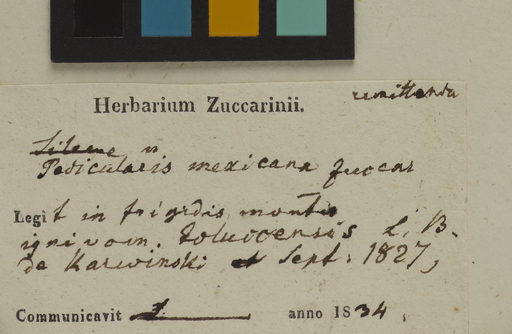 Herbarium Zuccarinii. remittenda
Silene n
Pedicularis mexicana Zuccar
Legit in frigidis montis
ignivom. toluccensis L. B.
de Karwinski Sept. 1827,
Communicavit anno 1834.